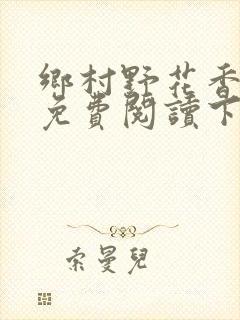 鄉村野花香
免費閱讀下
索曼兒